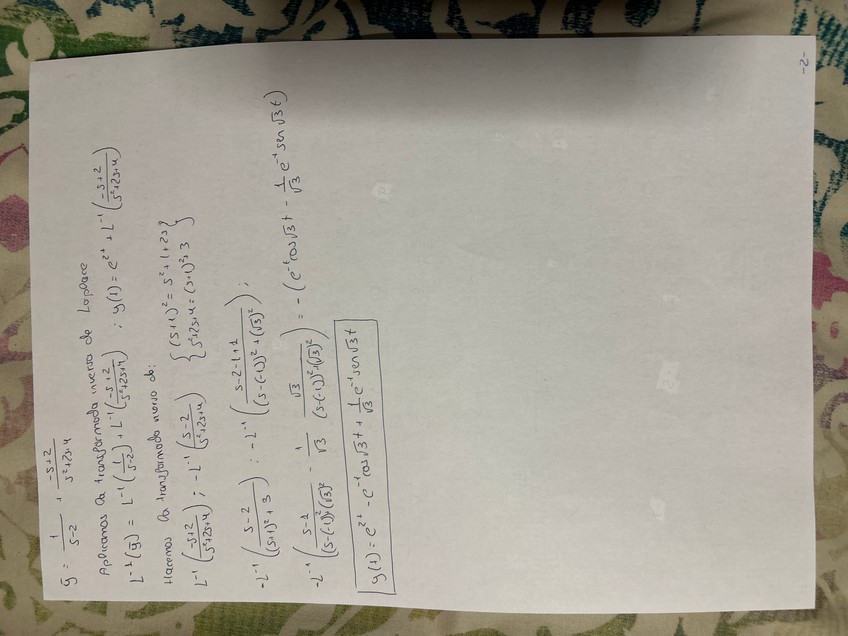 ȳ = 1/(s-2) + (-s+2)/(s²+2s+4)
Aplicamos la transformada inversa de Laplace
L⁻¹(ȳ) = L⁻¹(1/(s-2)) + L⁻¹((-s+2)/(s²+2s+4)) ; y(t) = e²ᵗ + L⁻¹((-s+2)/(s²+2s+4))
Hacemos la transformada inversa de:
L⁻¹((-s+2)/(s²+2s+4)) ; -L⁻¹((s-2)/(s²+2s+4)) { (s+1)² = s²+1+2s }
{ s²+2s+4 = (s+1)²+3 }
-L⁻¹((s-2)/((s+1)²+3)) : -L⁻¹((s-2-1+1)/((s-(-1))²+(√3)²)) ;
-L⁻¹((s-1)/((s-(-1))²+(√3)²) - 1/√3 √3/((s-(-1))²+(√3)²)) = -(e⁻ᵗcos√3t - 1/√3 e⁻ᵗsen√3t)
y(t) = e²ᵗ - e⁻ᵗcos√3t + 1/√3 e⁻ᵗsen√3t
-2-